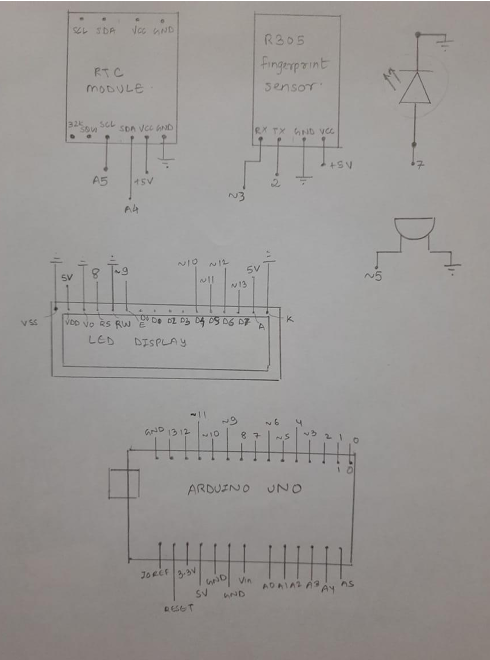 SCL SDA VCC GND
RTC
MODULE
32K SQW SCL SDA VCC GND
A5 +5V
A4
R305
fingerprint
sensor
RX TX GND VCC
+5V
~3 2
7
~5
5V 8 ~9 ~10 ~11 ~12 ~13 5V
VSS VDD VO RS RW E D0 D1 D2 D3 D4 D5 D6 D7 A K
LED DISPLAY
GND 13 12 ~11 ~10 ~9 8 7 ~6 ~5 4 ~3 2 1 0
1 0
ARDUINO UNO
IOREF RESET 3.3V 5V GND GND Vin A0 A1 A2 A3 A4 A5